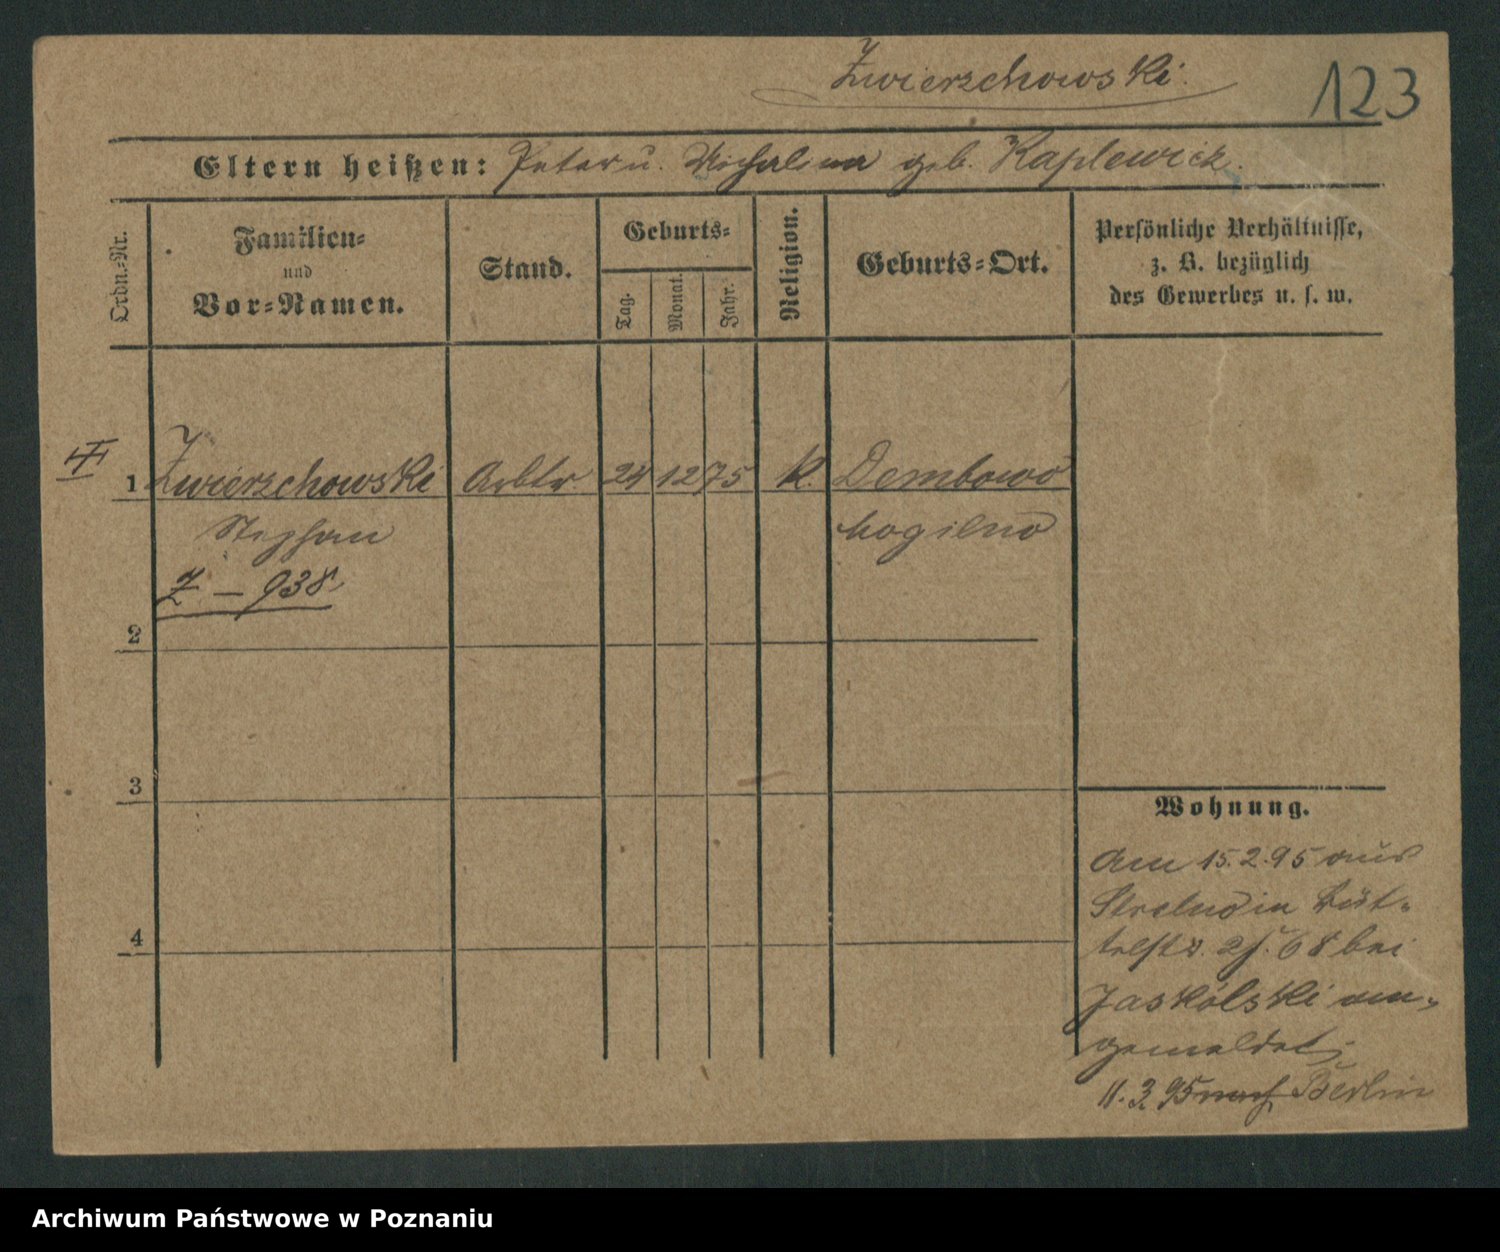 Zwierzchowski.
123
Eltern heißen: Peter u. Michalina geb. Kaplewicz.
Ordn.-Nr.
Familien-
und
Vor-Namen.
Stand.
Geburts-
Tag.
Monat.
Jahr.
Religion.
Geburts-Ort.
Persönliche Verhältnisse,
z. B. bezüglich
des Gewerbes u. s. w.
1 Zwierzchowski Arbtr 24 12 75 K. Dembowo
Stephan Mogilno
Z – 938
2
3
4
Wohnung.
Am 15.2.95 aus
Strelno in Büt-
telstr. 68 bei
Jaskólski an-
gemeldet;
11.3.95 nach Berlin
Archiwum Państwowe w Poznaniu